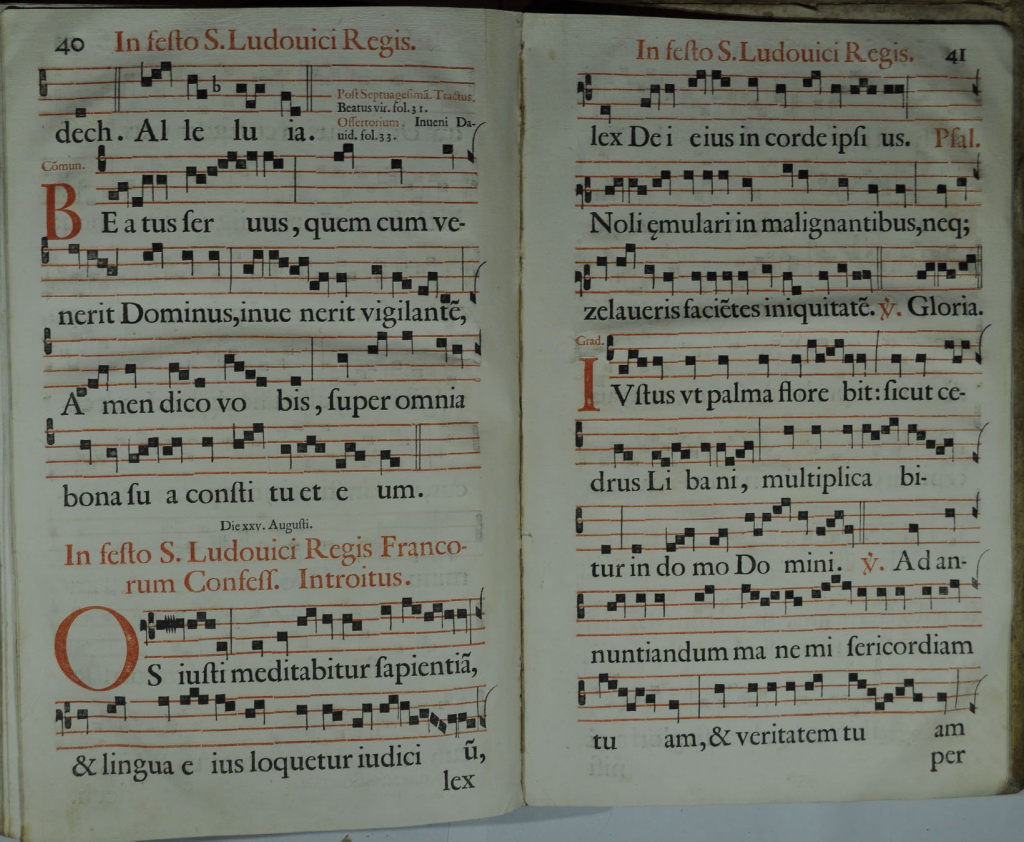 40 In feſto S. Ludouici Regis.
Poſt Septuageſimā. Tractus.
Beatus vir. fol. 31.
Offertorium. Inueni Da-
uid. fol. 33.
dech. Al le lu ia.
Cōmun.
BE a tus ſer uus, quem cum ve-
nerit Dominus, inue nerit vigilantē,
A men dico vo bis, ſuper omnia
bona ſu a conſti tu et e um.
Die xxv. Auguſti.
In feſto S. Ludouici Regis Franco-
rum Confeſſ. Introitus.
OS iuſti meditabitur ſapientiā,
& lingua e ius loquetur iudici ū,
lex
In feſto S. Ludouici Regis. 41
lex De i eius in corde ipſi us. Pſal.
Noli ęmulari in malignantibus, neq;
zelaueris faciētes iniquitatē. ℣. Gloria.
Grad.
IVſtus vt palma flore bit: ſicut ce-
drus Li ba ni, multiplica bi-
tur in do mo Do mini. ℣. Ad an-
nuntiandum ma ne mi ſericordiam
tu am, & veritatem tu am
per